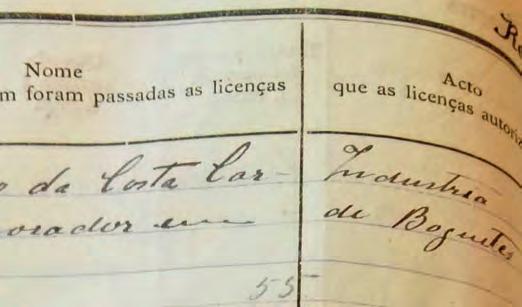 Nome
m foram passadas as licenças
Acto
que as licenças autoriz
o da Costa Car-
orador em
Industria
de Boguetes
55